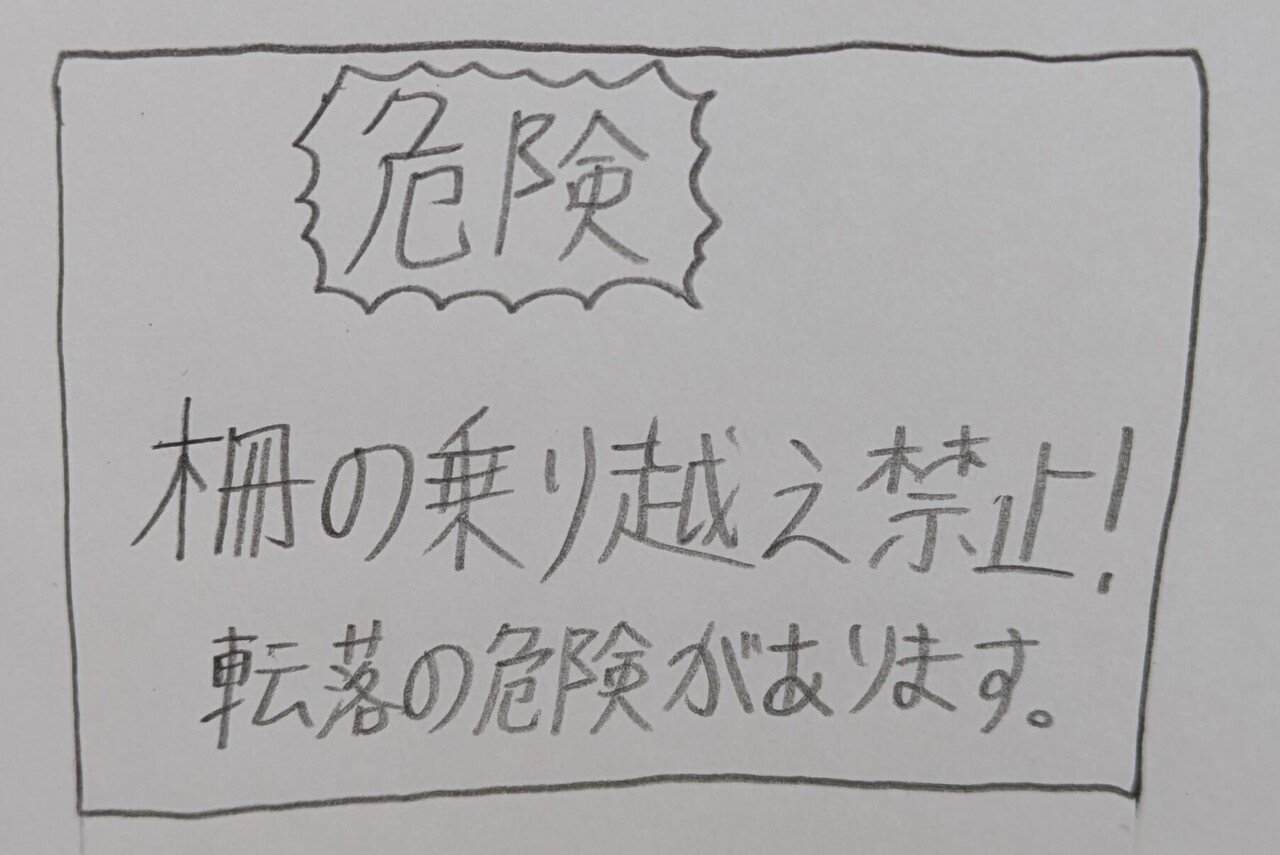 危険
柵の乗り越え禁止!
転落の危険があります。